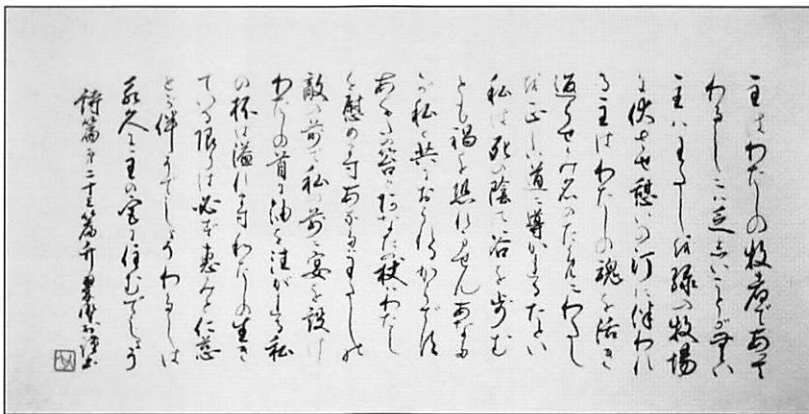 主はわたしの牧者であって
わたしには乏しいことが無い
主はわたしを緑の牧場
に伏させ憩いの汀に伴われ
る主はわたしの魂を活き
返らせみ名のためにわたし
を正しい道に導かれるたとい
私は死の陰の谷を歩む
とも禍を恐れませんあなた
が私と共におられるからです
あなたの笞とあなたの杖がわたし
を慰めますあなたはわたしの
敵の前で私の前に宴を設け
わたしの首に油を注がれる私
の杯は溢れますわたしの生き
ている限りは必ず恵みと仁慈
とが伴うでしょうわたしは
永久に主の宮に住むでしょう
詩篇第二十三篇